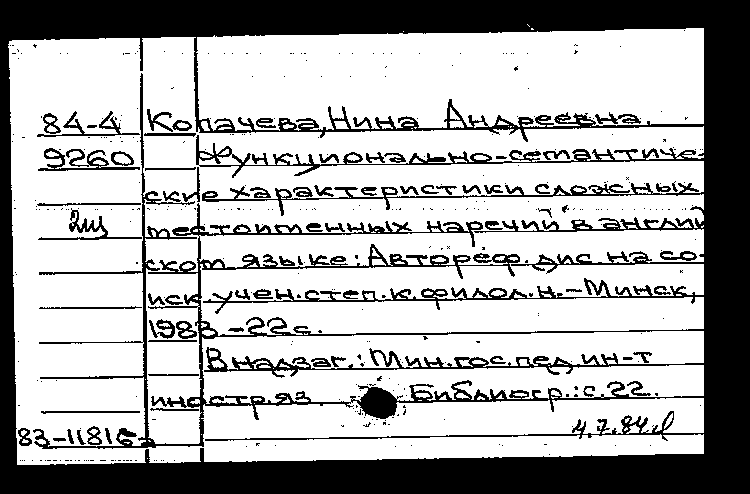 84-4 Копачева, Нина Андреевна.
9260 Функционально-семантиче-
ские характеристики сложных
2ш местоименных наречий в англий
ском языке: Автореф. дис. на со-
иск. учен. степ. к. филол. н. - Минск,
1983. - 22 с.
В надзаг.: Мин. гос. пед. ин-т
иностр. яз. Библиогр.: с. 22.
83-11816а
4.7.84